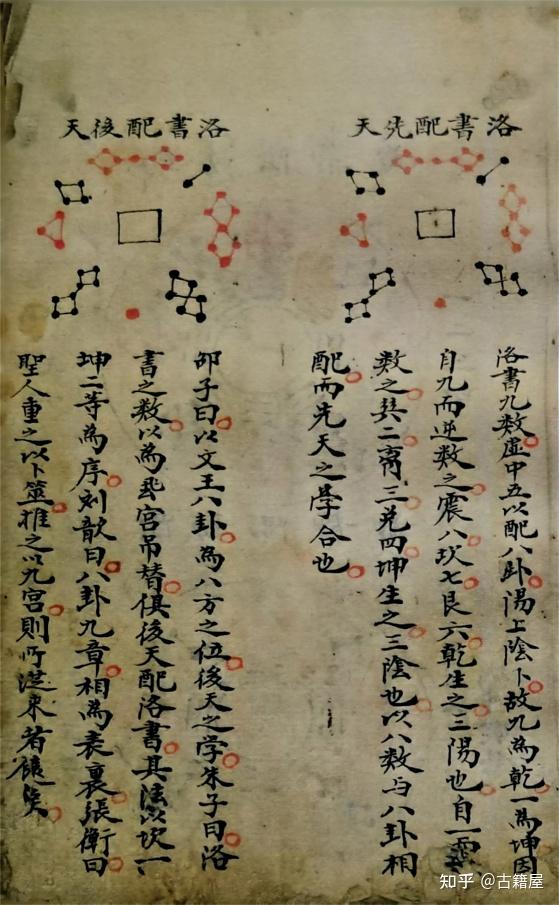 洛書配先天
洛書九数虛中五以配八卦陽上陰下故九為乾一為坤因
自九而逆数之震八坎七艮六乾生之三陽也自一
数之巽二离三兌四坤生之三陰也以八数与八卦相
配而先天之學合也
洛書配後天
邵子曰以文王八卦為八方之位後天之学朱子曰洛
書之数以為飛宮吊替俱後天配洛書其法以坎一
坤二等為序刘歆曰八卦九章相為表裏張衡曰
聖人重之以卜筮推之以九宮則所從來者遠矣
知乎 @古籍屋